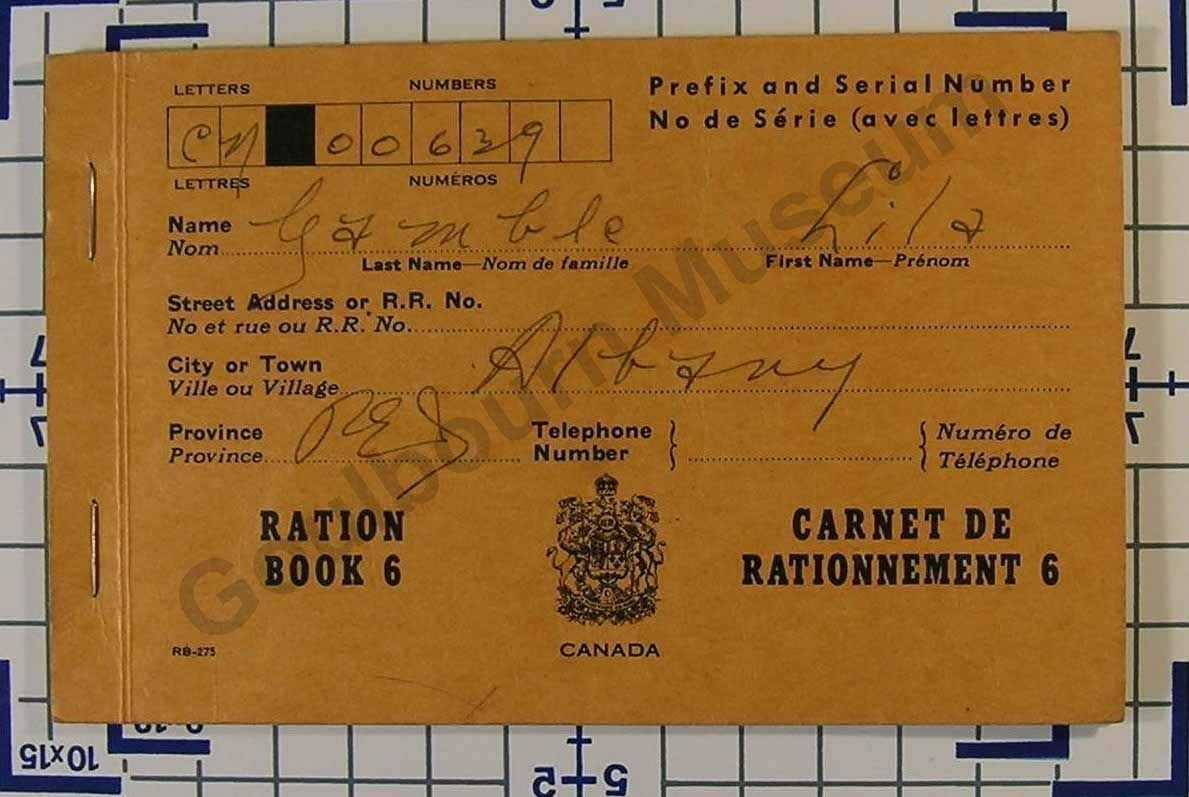 LETTERS NUMBERS
CN 00639
LETTRES NUMÉROS
Prefix and Serial Number
No de Série (avec lettres)
Name Gamble Lila
Nom
Last Name—Nom de famille First Name—Prénom
Street Address or R.R. No.
No et rue ou R.R. No.
City or Town Albany
Ville ou Village
Province PEI Telephone Numéro de
Province Number Téléphone
RATION CARNET DE
BOOK 6 RATIONNEMENT 6
RB-275
CANADA
Goulbourn Museum
10x15